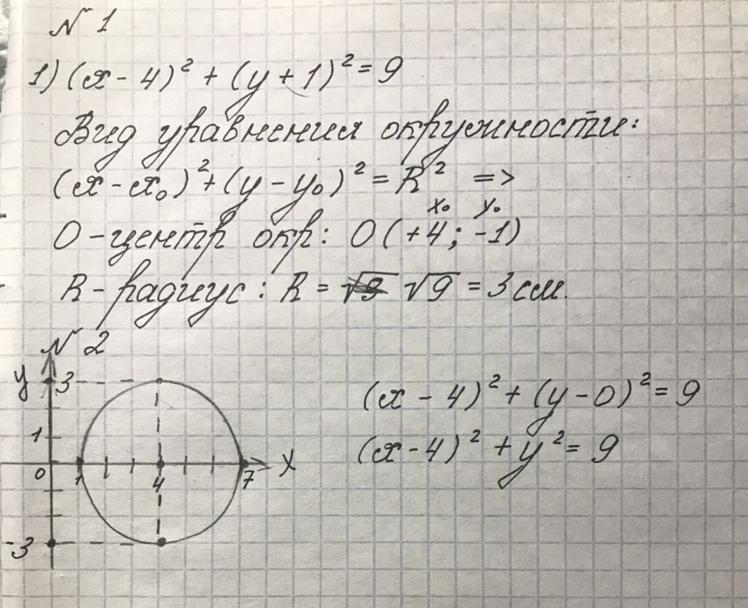 N 1
1) (x - 4)² + (y + 1)² = 9
Вид уравнения окружности:
(x - x₀)² + (y - y₀)² = R² =>
x₀ y₀
O - центр окр: O (+4; -1)
R - радиус: R = √3 √9 = 3 см.
N 2
y 3
1
0 1 4 7 X
-3
(x - 4)² + (y - 0)² = 9
(x - 4)² + y² = 9